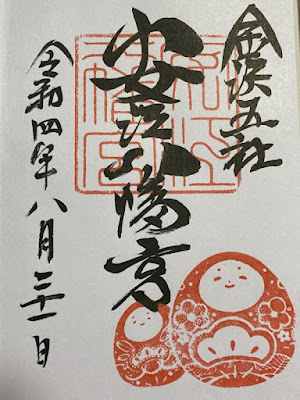 金沢五社
安江八幡宮
令和四年八月三十一日